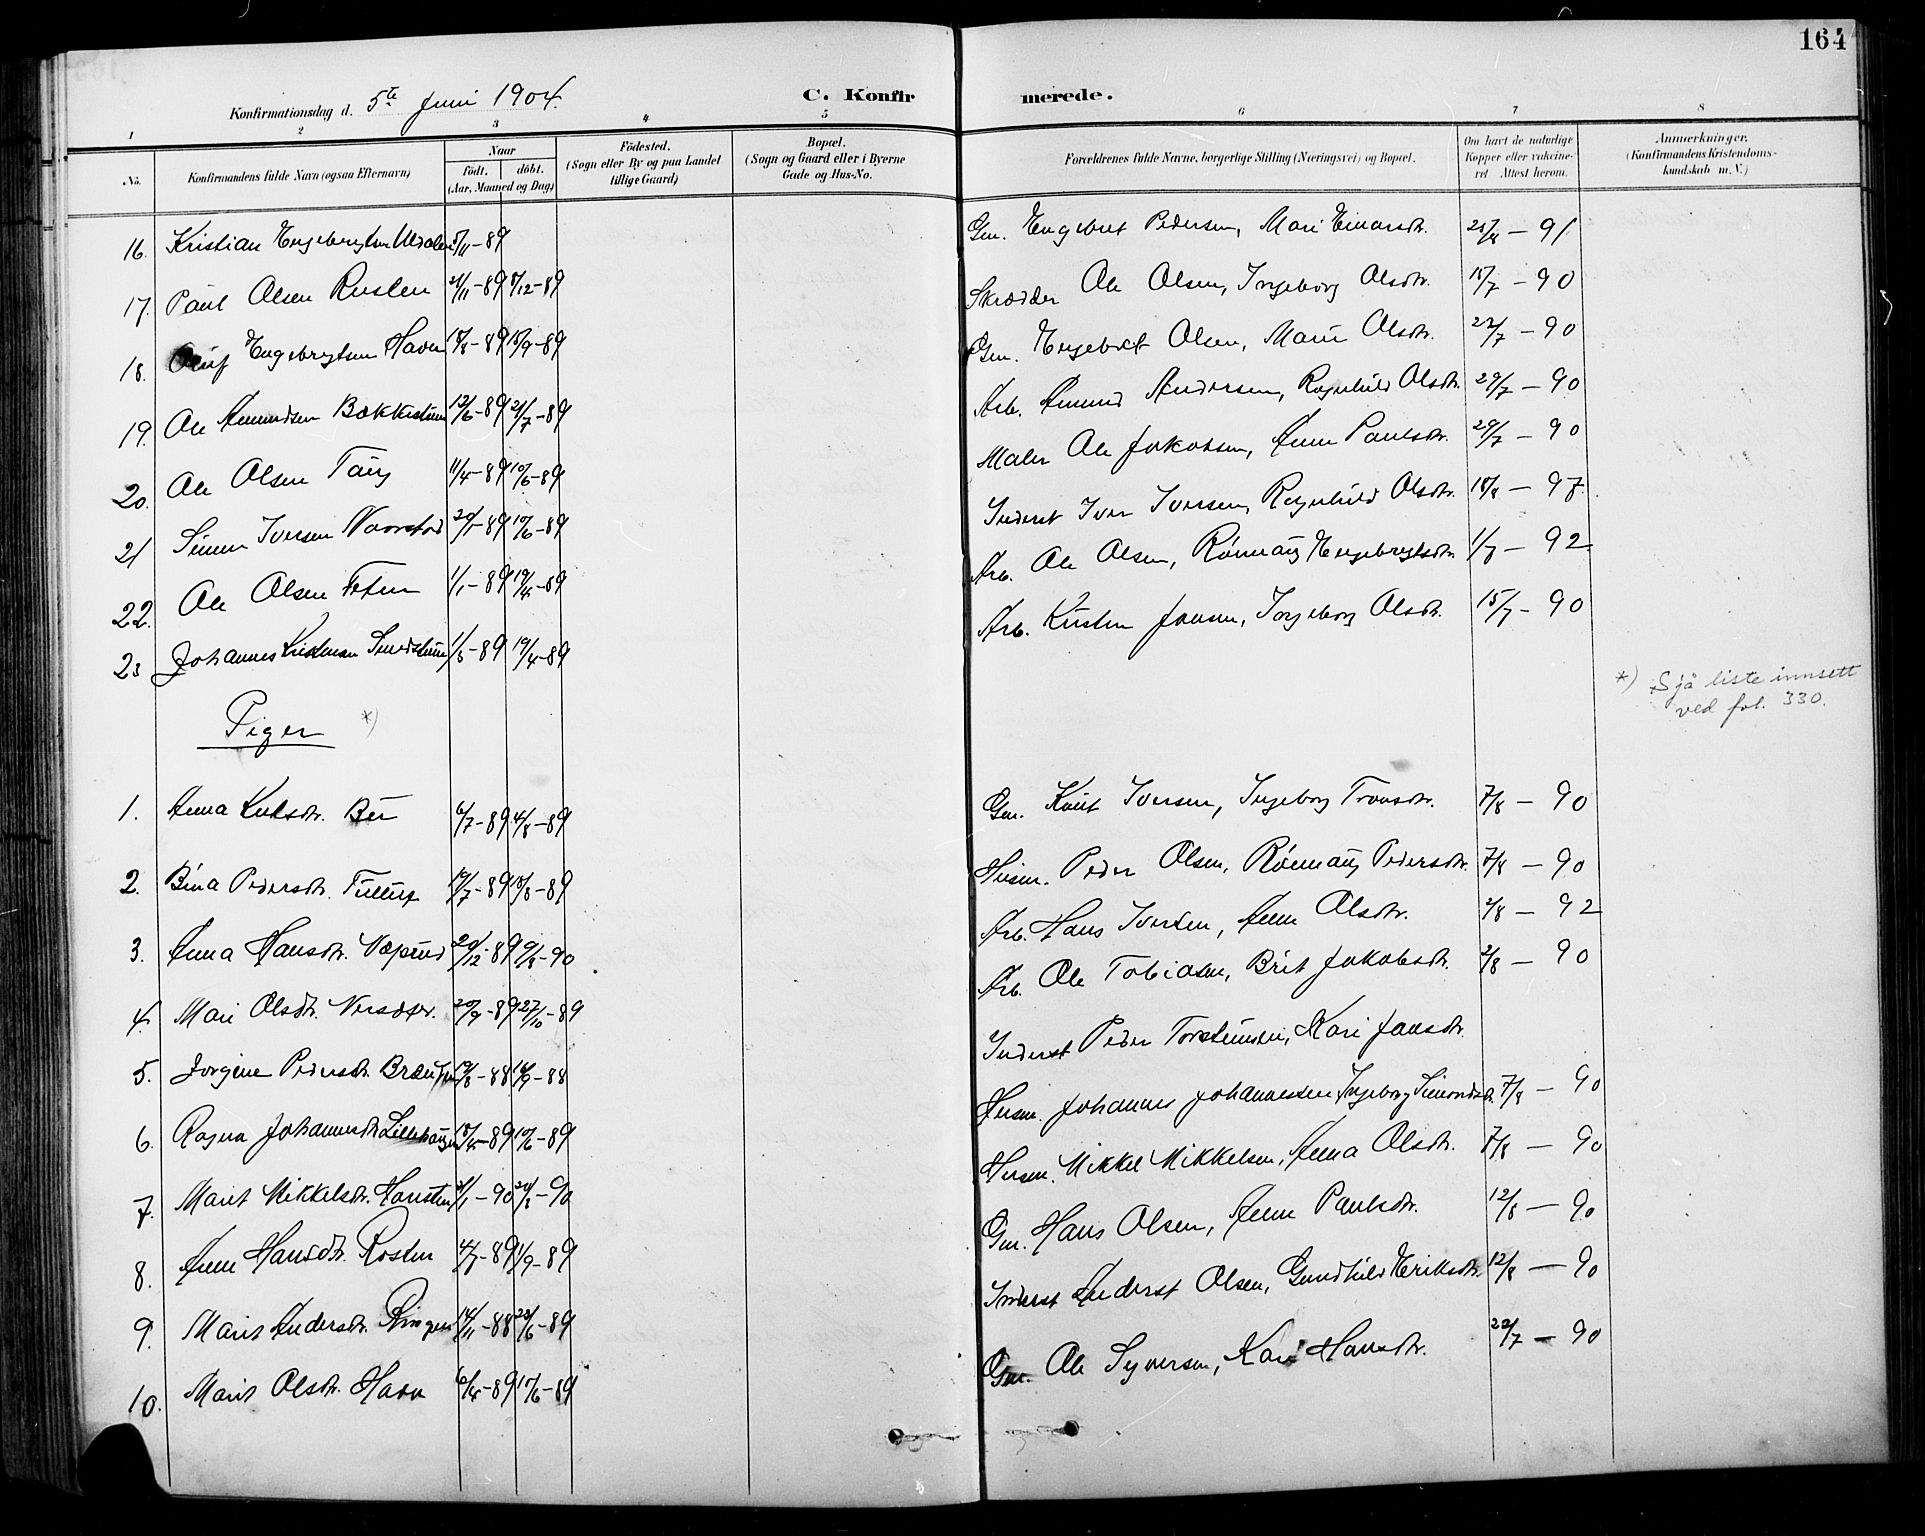 164
Konfirmationsdag d. 5te Juni 1904.
C. Konfirmerede.
1 2 3 4 5 6 7 8
No. Konfirmandens fulde Navn (ogsaa Efternavn) Naar födt. döbt. (Aar, Maaned og Dag) Födested. (Sogn eller By og paa Landet tillige Gaard) Bopæl. (Sogn og Gaard eller i Byerne Gade og Hus-No. Forældrenes fulde Navne, borgerlige Stilling (Næringsvei) og Bopæl. Om havt de naturlige Kopper eller vakcineret Attest herom. Anmærkninger, (Konfirmandens Kristendomskundskab m. V.)
16. Kristian Engebrigtsen 5/11-89 Gm. Engebret Pedersen, Mari Einarsdr. 25/8 - 91
17. Paul Olsen Rusten 21/11-89 8/12-89 Skrædder Ole Olsen, Ingeborg Olsdr. 15/7 - 90
18. Oluf Engebrigtsen Havn 18/8-89 15/9-89 Gm. Engebret Olsen, Marie Olsdr. 22/7 - 90
19. Ole Amundsen Bækkestuen 12/6-89 21/7-89 Arb. Amund Andersen, Ragnhild Olsdr. 29/7 - 90
20. Ole Olsen Taug 11/4-89 10/6-89 Maler Ole Jakobsen, Anne Paulsdr. 29/7 - 90
21 Simen Iversen Norstad 10/6-89 Inderst Iver Iversen, Ragnhild Olsdr. 18/8 - 97
22. Ole Olsen 1/1-89 19/4-89 Arb. Ole Olsen, Rønnaug Engebrigtsdr. 1/7 - 92
23 Johannes Kristensen Smedstuen 1/3-89 19/4-89 Arb. Kristen Jonsen, Ingeborg Olsdr. 15/7 - 90
Piger *)
*) Sjå liste innsett
ved fol. 330.
1. Anna Knutsdr. 6/7-89 4/8-89 Gm. Knut Iversen, Ingeborg Tronsdr. 7/8 - 90
2. Bina Pedersdr. 14/7-89 18/8-89 Husm. Peder Olsen, Rønnaug Pedersdr. 7/8 - 90
3. Anna Hansdr. 29/12-89 9/3-90 Arb. Hans Iversen, Anne Olsdr. 2/8 - 92
4. Mari Olsdr. 20/9-89 27/10-89 Arb. Ole Tobiasen, Brit Jakobsdr. 2/8 - 90
5. Jorgine Pedersdr. 19/8-88 16/9-88 Inderst Peder Torsteinsen, Kari Jansdr.
6. Ragna Johannesdr. Lillehaugen 18/4-89 10/6-89 Husm. Johannes Johannessen Ingeborg Simonsdr. 7/8 - 90
7. Marit Mikkelsdr. 21/1-90 Husm. Mikkel Mikkelsen, Anna Olsdr. 7/8 - 90
8. Anne Hansdr. Rosten 4/7-89 1/9-89 Gm. Hans Olsen, Anne Paulsdr. 12/8 - 90
9. Marit Andersdr. Ringen 14/11-88 23/6-89 Inderst Anderst Olsen, Gundhild Eriksdr. 12/8 - 90
10. Marit Olsdr. Havn 6/4-89 10/6-89 Gm. Ole Syversen, Kari Hansdr. 22/7 - 90